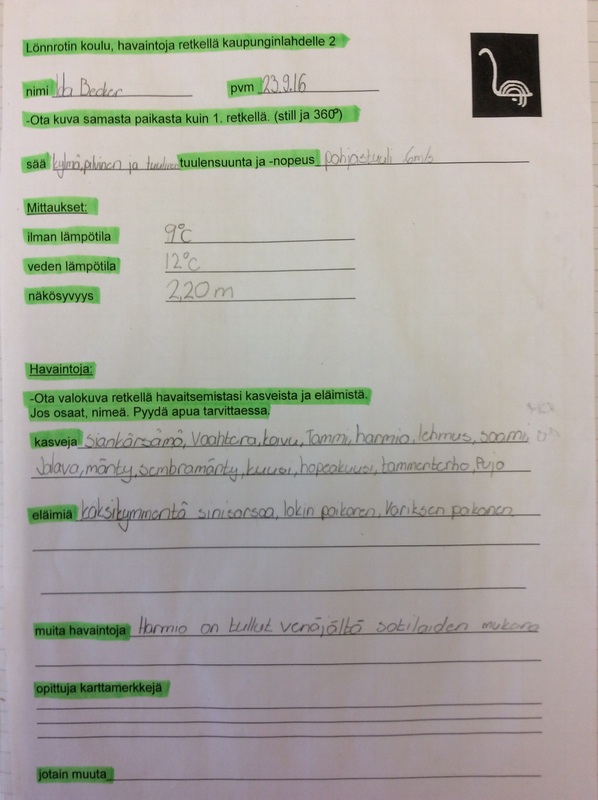 Lönnrotin koulu, havaintoja retkellä kaupunginlahdelle 2
nimi Ida Becker pvm 23.9.16
-Ota kuva samasta paikasta kuin 1. retkellä. (still ja 360°)
sää kylmä, pilvinen ja tuulinen tuulensuunta ja -nopeus pohjoistuuli 6m/s
Mittaukset:
ilman lämpötila 9°C
veden lämpötila 12°C
näkösyvyys 2,20 m
Havaintoja:
-Ota valokuva retkellä havaitsemistasi kasveista ja eläimistä.
Jos osaat, nimeä. Pyydä apua tarvittaessa.
kasveja Siankärsämö, Vaahtera, koivu, Tammi, harmio, lehmus, saarni,
Jalava, mänty, sembramänty, kuusi, hopeakuusi, tammenterho, Pujo
eläimiä kaksikymmentä sinisorsaa, lokin poikanen, Variksen poikanen,
muita havaintoja Harmio on tullut venäjältä sotilaiden mukana
opittuja karttamerkkejä
jotain muuta